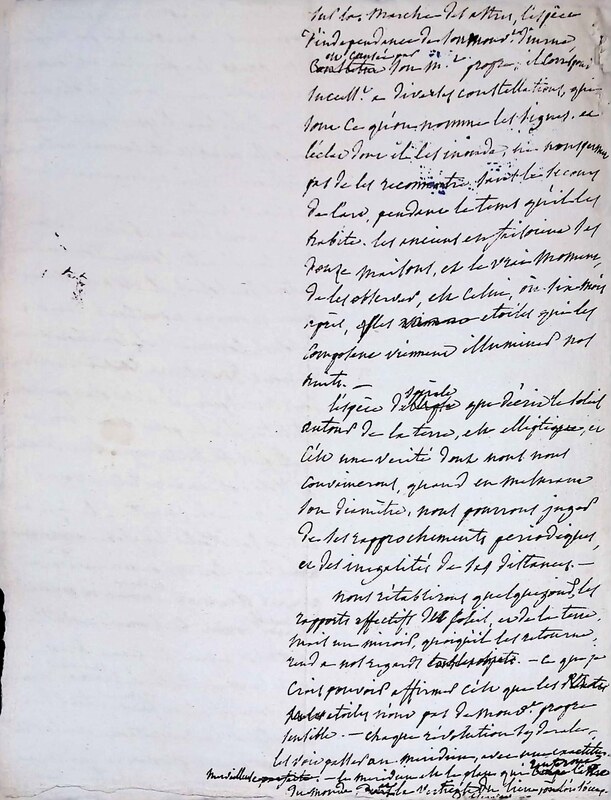 sur la marche des astres, l'espèce
d'independance de son mouv.t diurne,
ou causée par
son m.t propre, il correspond
success.t a diverses constellations, qui
sont ce qu'on nomme les signes. et
l'éclat dont il les inonde, ne nous permet
pas de les reconnoitre sans le secours
de l'art, pendant le tems qu'il les
habite. les anciens en faisoient ses
douze maisons, et le vrai moment
de les observer, est celui, où six mois
après, les etoiles qui les
composent viennent illuminer nos
nuits. —
spirale
l'espèce de que décrit le soleil
autour de la terre, est elliptique, et
c'est une verité dont nous nous
convaincrons, quand en mesurant
son diamètre, nous pourrons juger
de ses rapprochements periodiques,
et des inegalités de ses distances. —
nous rétablirons quelque jour, les
rapports effectifs du soleil, et de la terre,
mais un miroir, quoiqu'il les retourne,
rend a nos regards les objets. — ce que je
crois pouvoir affirmer c'est que les
etoiles n'ont pas de mouv.t propre
sensible. — chaque revolution siderale,
les voit passer au meridien, avec une exactitude
merveilleuse. — le meridien est le plan qui
du monde,